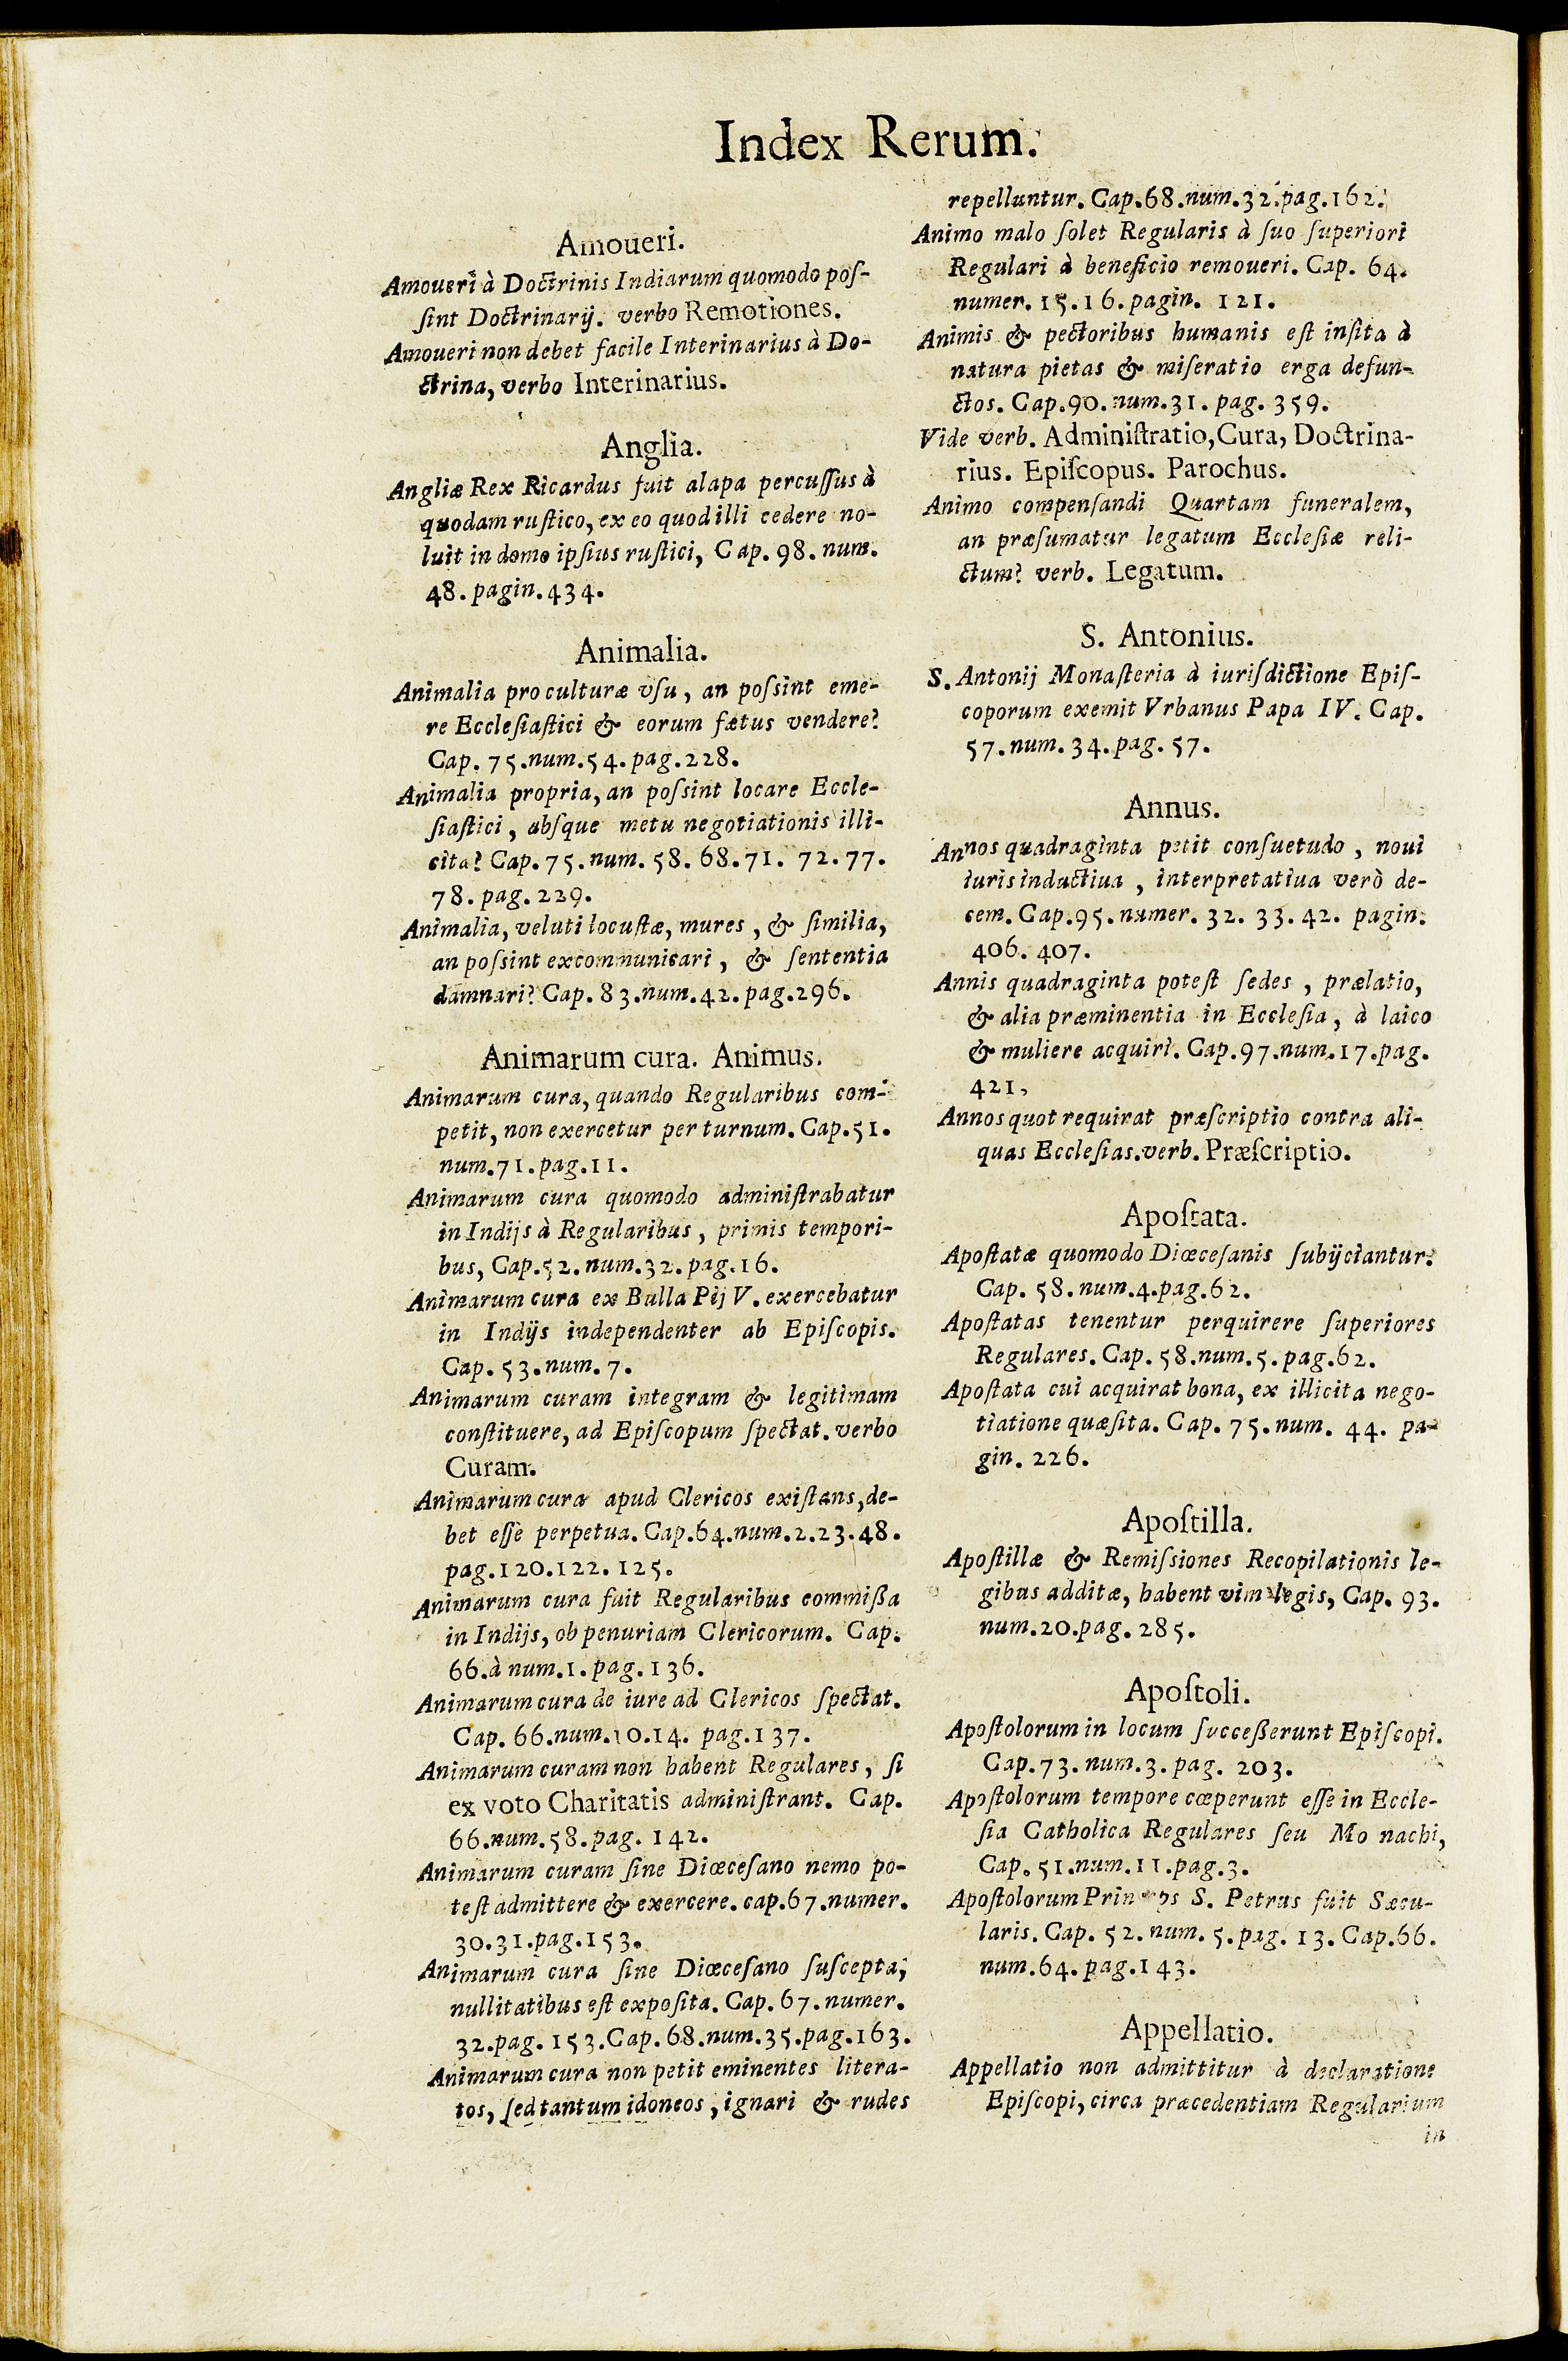 Index Rerum.
Amoueri.
Amoueri à Doctrinis Indiarum quomodo poſ-
ſint Doctrinarij. verbo Remotiones.
Amoueri non debet facile Interinarius à Do-
ctrina, verbo Interinarius.
Anglia.
Angliæ Rex Ricardus fuit alapa percuſſus à
quodam ruſtico, ex eo quod illi cedere no-
luit in domo ipſius ruſtici, Cap. 98. num.
48. pagin. 434.
Animalia.
Animalia pro culturæ vſu, an poſsint eme-
re Eccleſiaſtici & eorum fætus vendere?
Cap. 75. num. 54. pag. 228.
Animalia propria, an poſsint locare Eccle-
ſiaſtici, abſque metu negotiationis illi-
cita? Cap. 75. num. 58. 68. 71. 72. 77.
78. pag. 229.
Animalia, veluti locuſtæ, mures, & ſimilia,
an poſsint excommunicari, & ſententia
damnari? Cap. 83. num. 42. pag. 296.
Animarum cura. Animus.
Animarum cura, quando Regularibus com-
petit, non exercetur per turnum. Cap. 51.
num. 71. pag. 11.
Animarum cura quomodo adminiſtrabatur
in Indijs à Regularibus, primis tempori-
bus, Cap. 52. num. 32. pag. 16.
Animarum cura ex Bulla Pij V. exercebatur
in Indijs independenter ab Epiſcopis.
Cap. 53. num. 7.
Animarum curam integram & legitimam
conſtituere, ad Epiſcopum ſpectat. verbo
Curam.
Animarum cura apud Clericos exiſtans, de-
bet eſſe perpetua. Cap. 64. num. 2. 23. 48.
pag. 120. 122. 125.
Animarum cura fuit Regularibus commißa
in Indijs, ob penuriam Clericorum. Cap.
66. à num. 1. pag. 136.
Animarum cura de iure ad Clericos ſpectat.
Cap. 66. num. 10. 14. pag. 137.
Animarum curam non habent Regulares, ſi
ex voto Charitatis adminiſtrant. Cap.
66. num. 58. pag. 142.
Animarum curam ſine Diœceſano nemo po-
teſt admittere & exercere. cap. 67. numer.
30. 31. pag. 153.
Animarum cura ſine Diœceſano ſuſcepta,
nullitatibus eſt expoſita. Cap. 67. numer.
32. pag. 153. Cap. 68. num. 35. pag. 163.
Animarum cura non petit eminentes litera-
tos, ſed tantum idoneos, ignari & rudes
repelluntur. Cap. 68. num. 32. pag. 162.
Animo malo ſolet Regularis à ſuo ſuperiori
Regulari à beneficio remoueri. Cap. 64.
numer. 15. 16. pagin. 121.
Animis & pectoribus humanis eſt inſita à
natura pietas & miſeratio erga defun-
ctos. Cap. 90. num. 31. pag. 359.
Vide verb. Adminiſtratio, Cura, Doctrina-
rius. Epiſcopus. Parochus.
Animo compenſandi Quartam funeralem,
an præſumatur legatum Eccleſiæ reli-
ctum? verb. Legatum.
S. Antonius.
S. Antonij Monaſteria à iuriſdictione Epiſ-
coporum exemit Vrbanus Papa IV. Cap.
57. num. 34. pag. 57.
Annus.
Annos quadraginta petit conſuetudo, noui
iuris inductiua, interpretatiua verò de-
cem. Cap. 95. numer. 32. 33. 42. pagin.
406. 407.
Annis quadraginta poteſt ſedes, prælatio,
& alia præminentia in Eccleſia, à laico
& muliere acquiri. Cap. 97. num. 17. pag.
421,
Annos quot requirat præſcriptio contra ali-
quas Eccleſias. verb. Præſcriptio.
Apoſtata.
Apoſtatæ quomodo Diœceſanis ſubijciantur.
Cap. 58. num. 4. pag. 62.
Apoſtatas tenentur perquirere ſuperiores
Regulares. Cap. 58. num. 5. pag. 62.
Apoſtata cui acquirat bona, ex illicita nego-
tiatione quæſita. Cap. 75. num. 44. pa-
gin. 226.
Apoſtilla.
Apoſtillæ & Remiſsiones Recopilationis le-
gibus additæ, habent vim legis, Cap. 93.
num. 20. pag. 285.
Apoſtoli.
Apoſtolorum in locum ſucceßerunt Epiſcopi.
Cap. 73. num. 3. pag. 203.
Apoſtolorum tempore cœperunt eſſe in Eccle-
ſia Catholica Regulares ſeu Mo nachi,
Cap. 51. num. 11. pag. 3.
Apoſtolorum Princeps S. Petrus fuit Sæcu-
laris. Cap. 52. num. 5. pag. 13. Cap. 66.
num. 64. pag. 143.
Appellatio.
Appellatio non admittitur à declaratione
Epiſcopi, circa præcedentiam Regularium
in